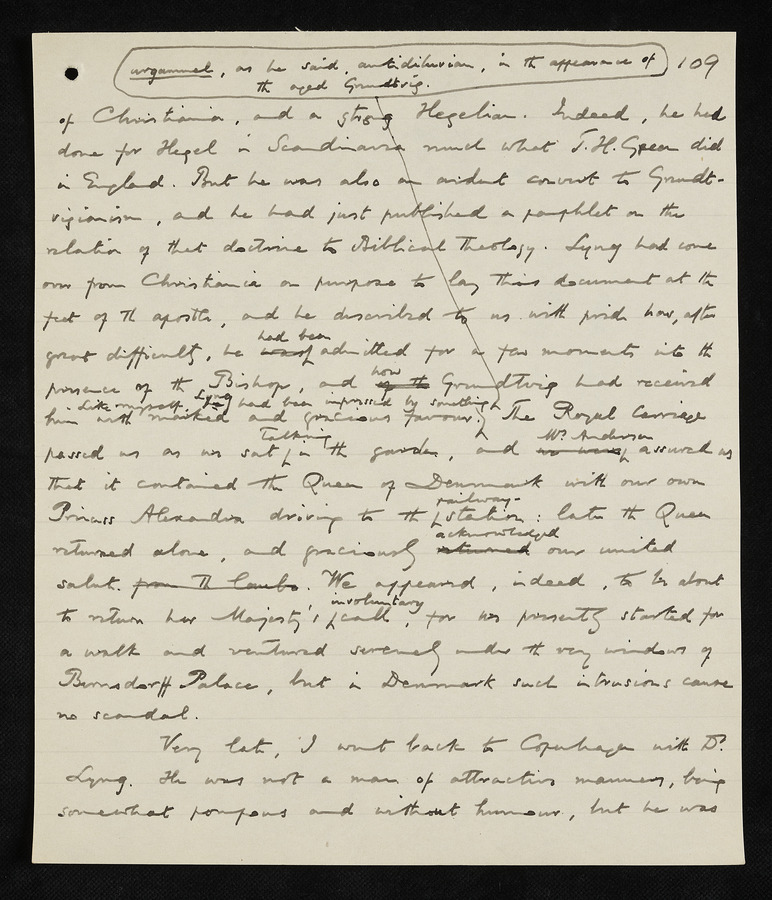 urgammel, as he said, antidiluvian, in th appearance of 109
th aged Grundtvig.
of Christiania, and a strong Hegelian. Indeed, he had
done for Hegel in Scandinavia much what T. H. Green did
in England. But he was also an ardent convert to Grundt-
vigianism, and he had just published a pamphlet on the
relation of that doctrine to Biblical Theology. Lyng had come
over from Christiania on purpose to lay this document at th
feet of th apostle, and he described to us with pride how, after
had been
great difficulty, he was admitted for a few moments into th
how
presence of th Bishop, and of th Grundtvig had received
Like myself, Lyng he had been impressed by something
him with marked and gracious favour. The Royal Carriage
Talking Mr. Anderson
passed us as we sat in th garden, and we were assured us
that it contained th Queen of Denmark with our own
railway-
Princess Alexandra driving to th station: later th Queen
acknowledged
returned alone, and graciously returned our united
salute from th landau. We appeared, indeed, to be about
involuntary
to return her Majesty's call, for we presently started for
a walk and ventured serenely under th very windows of
Bernsdorff Palace, but in Denmark such intrusions cause
no scandal.
Very late, I went back to Copenhagen with Dr.
Lyng. He was not a man of attractive manners, being
somewhat pompous and without humour, but he was